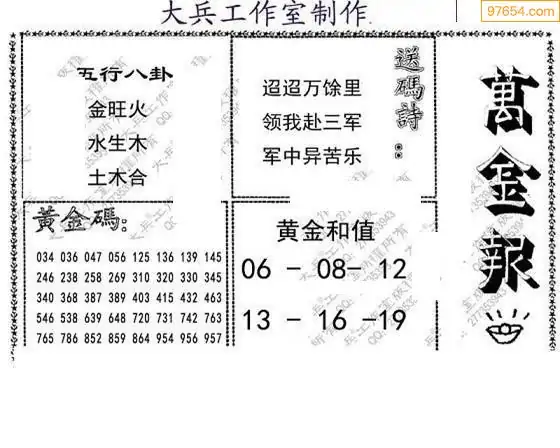 大兵工作室制作.
97654.com
五行八卦
金旺火
水生木
土木合
送碼詩:
迢迢万馀里
领我赴三军
军中异苦乐
萬金報
黃金碼:
034 036 047 056 125 136 139 145
246 238 258 269 310 320 330 345
340 368 387 389 403 415 432 463
546 538 639 648 720 731 742 763
765 786 852 859 864 954 956 957
黄金和值
06 - 08- 12
13 - 16 -19